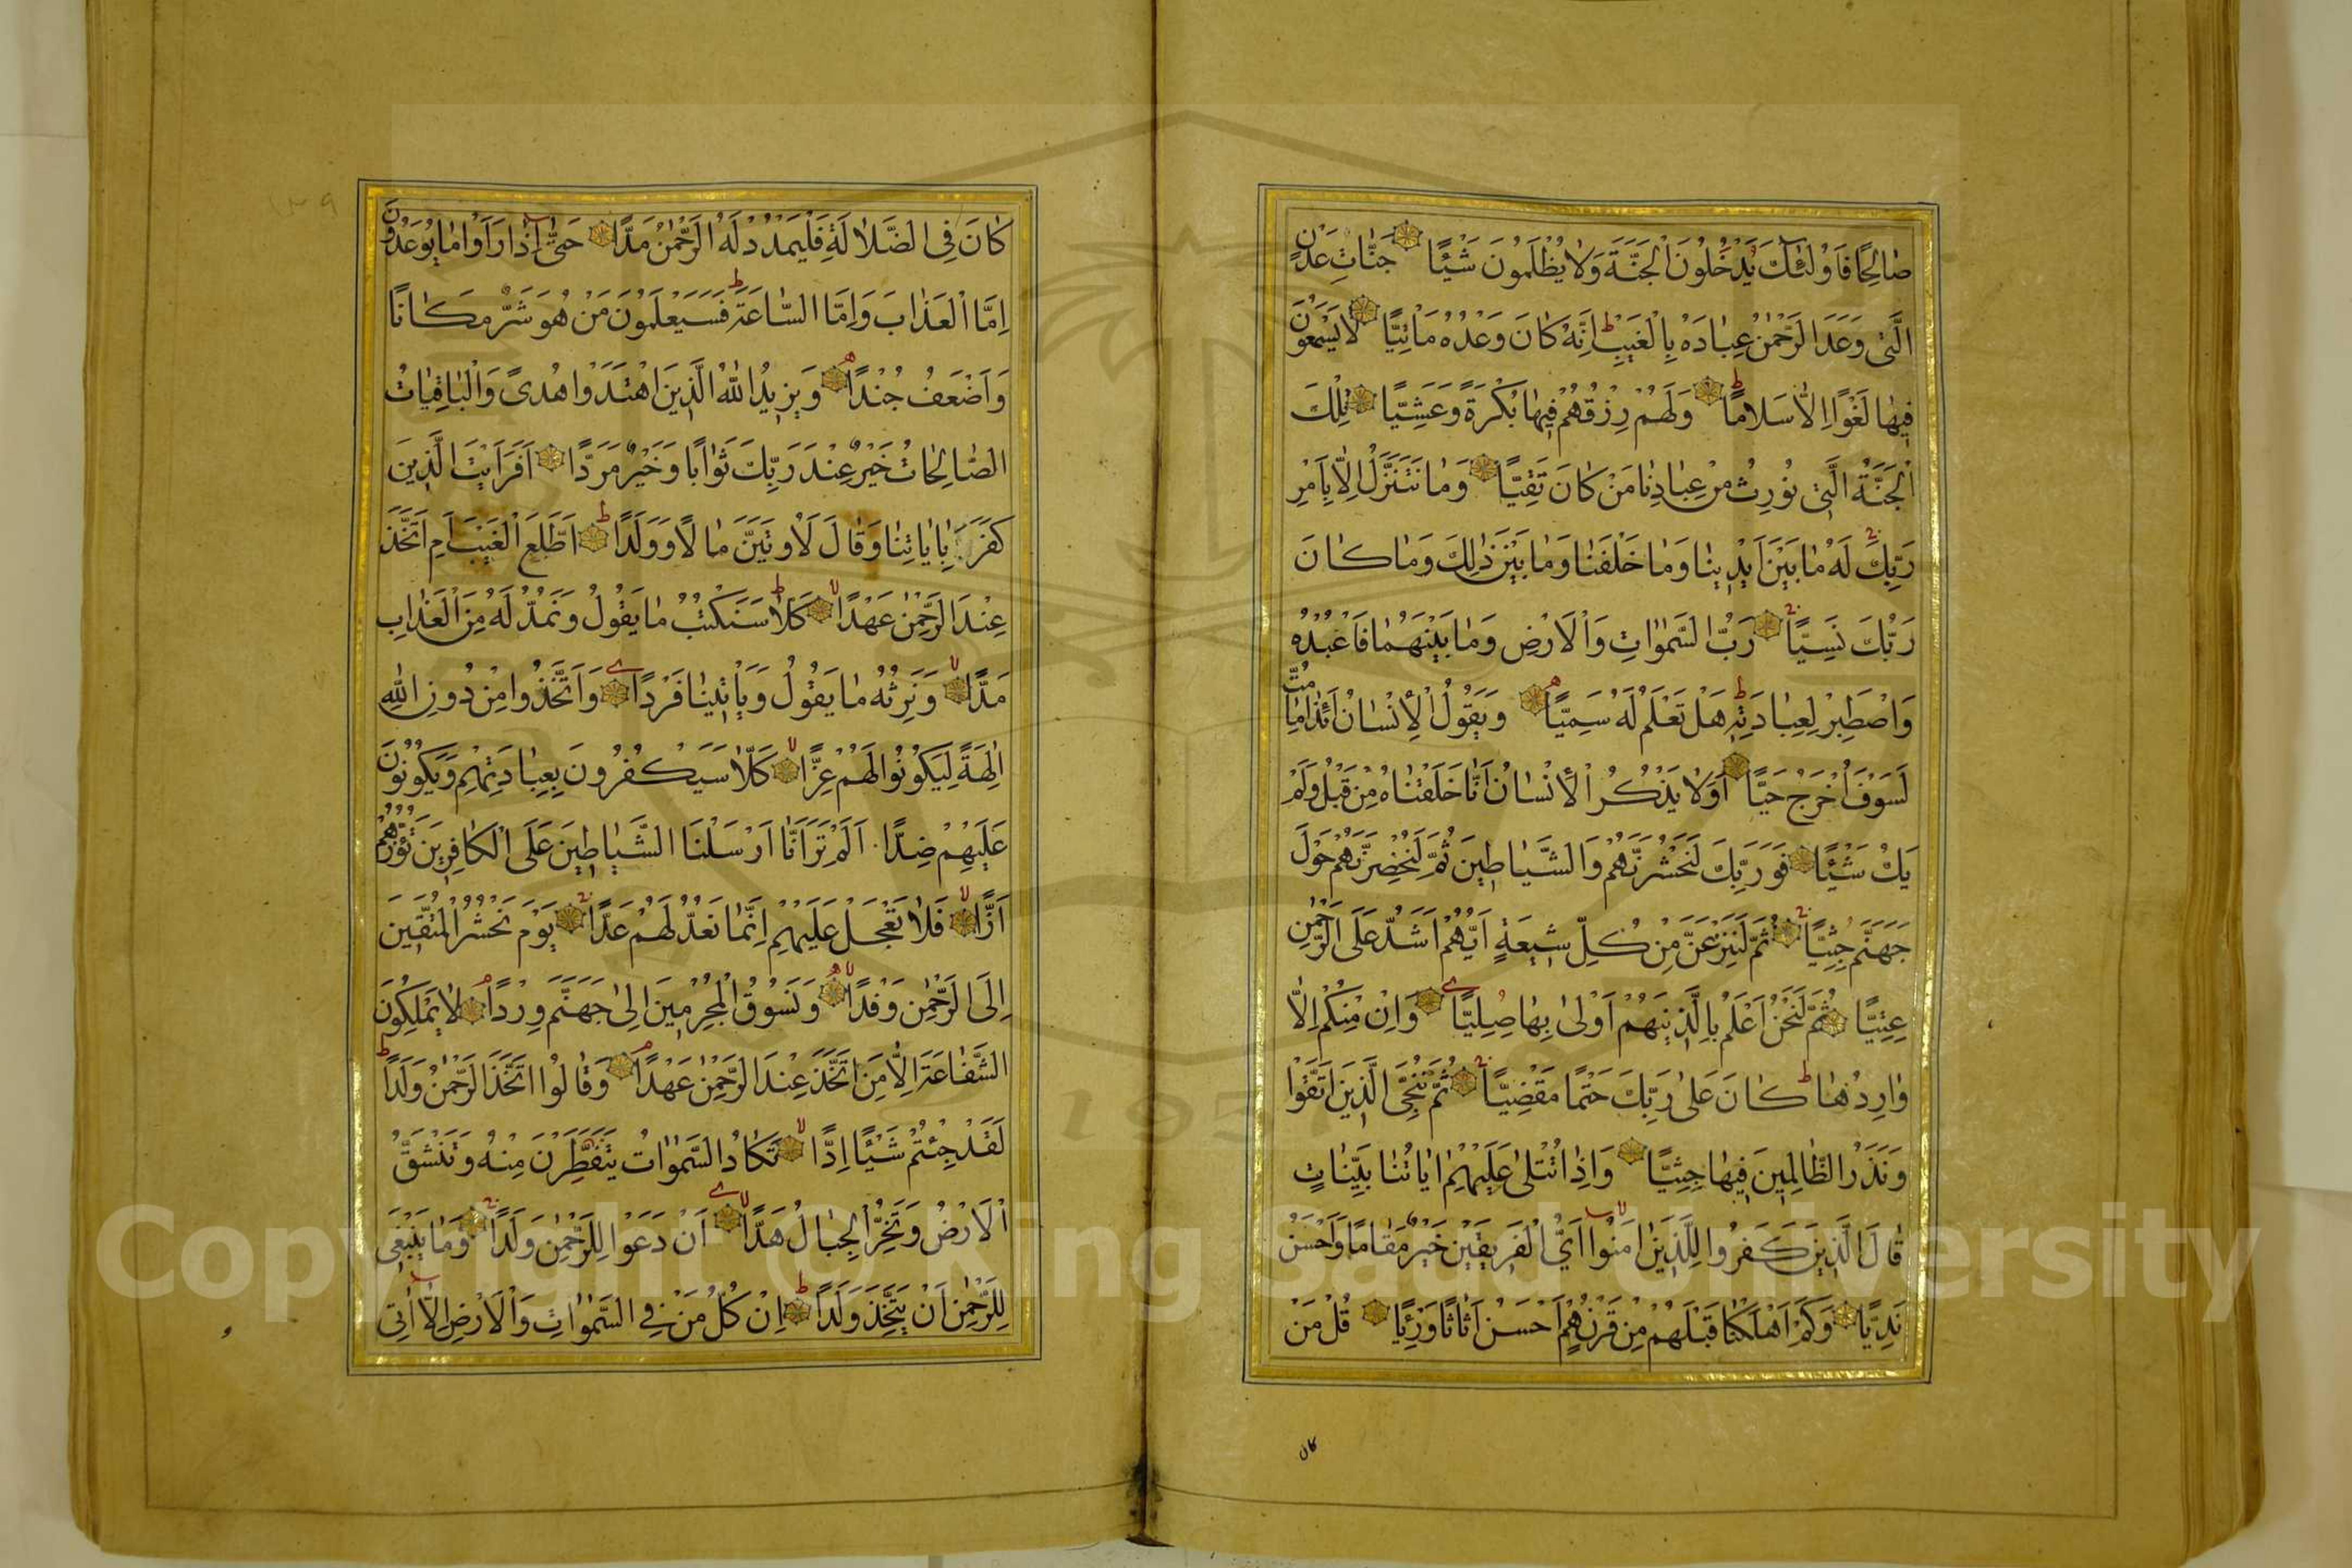 صَالِحًا فَاُولٰئِكَ يَدْخُلُونَ الْجَنَّةَ وَلَا يُظْلَمُونَ شَيْئًا جَنَّاتِ عَدْنٍ
الَّتِي وَعَدَ الرَّحْمٰنُ عِبَادَهُ بِالْغَيْبِ اِنَّهُ كَانَ وَعْدُهُ مَأْتِيًّا لَا يَسْمَعُونَ
فِيهَا لَغْوًا اِلَّا سَلَامًا وَلَهُمْ رِزْقُهُمْ فِيهَا بُكْرَةً وَعَشِيًّا تِلْكَ
الْجَنَّةُ الَّتِي نُورِثُ مِنْ عِبَادِنَا مَنْ كَانَ تَقِيًّا وَمَا نَتَنَزَّلُ اِلَّا بِاَمْرِ
رَبِّكَ لَهُ مَا بَيْنَ اَيْدِينَا وَمَا خَلْفَنَا وَمَا بَيْنَ ذٰلِكَ وَمَا كَانَ
رَبُّكَ نَسِيًّا رَبُّ السَّمٰوَاتِ وَالْاَرْضِ وَمَا بَيْنَهُمَا فَاعْبُدْهُ
وَاصْطَبِرْ لِعِبَادَتِهِ هَلْ تَعْلَمُ لَهُ سَمِيًّا وَيَقُولُ الْاِنْسَانُ اَئِذَا مَا مِتُّ
لَسَوْفَ اُخْرَجُ حَيًّا اَوَلَا يَذْكُرُ الْاِنْسَانُ اَنَّا خَلَقْنَاهُ مِنْ قَبْلُ وَلَمْ
يَكُ شَيْئًا فَوَرَبِّكَ لَنَحْشُرَنَّهُمْ وَالشَّيَاطِينَ ثُمَّ لَنُحْضِرَنَّهُمْ حَوْلَ
جَهَنَّمَ جِثِيًّا ثُمَّ لَنَنْزِعَنَّ مِنْ كُلِّ شِيعَةٍ اَيُّهُمْ اَشَدُّ عَلَى الرَّحْمٰنِ
عِتِيًّا ثُمَّ لَنَحْنُ اَعْلَمُ بِالَّذِينَ هُمْ اَوْلٰى بِهَا صِلِيًّا وَاِنْ مِنْكُمْ اِلَّا
وَارِدُهَا كَانَ عَلٰى رَبِّكَ حَتْمًا مَقْضِيًّا ثُمَّ نُنَجِّي الَّذِينَ اتَّقَوْا
وَنَذَرُ الظَّالِمِينَ فِيهَا جِثِيًّا وَاِذَا تُتْلٰى عَلَيْهِمْ اٰيَاتُنَا بَيِّنَاتٍ
قَالَ الَّذِينَ كَفَرُوا لِلَّذِينَ اٰمَنُوا اَيُّ الْفَرِيقَيْنِ خَيْرٌ مَقَامًا وَاَحْسَنُ
نَدِيًّا وَكَمْ اَهْلَكْنَا قَبْلَهُمْ مِنْ قَرْنٍ هُمْ اَحْسَنُ اَثَاثًا وَرِئْيًا قُلْ مَنْ
كان
كَانَ فِي الضَّلَالَةِ فَلْيَمْدُدْ لَهُ الرَّحْمٰنُ مَدًّا حَتّٰى اِذَا رَاَوْا مَا يُوعَدُونَ
اِمَّا الْعَذَابَ وَاِمَّا السَّاعَةَ فَسَيَعْلَمُونَ مَنْ هُوَ شَرٌّ مَكَانًا
وَاَضْعَفُ جُنْدًا وَيَزِيدُ اللّٰهُ الَّذِينَ اهْتَدَوْا هُدًى وَالْبَاقِيَاتُ
الصَّالِحَاتُ خَيْرٌ عِنْدَ رَبِّكَ ثَوَابًا وَخَيْرٌ مَرَدًّا اَفَرَاَيْتَ الَّذِينَ
كَفَرَ بِاٰيَاتِنَا وَقَالَ لَاُوتَيَنَّ مَالًا وَوَلَدًا اَطَّلَعَ الْغَيْبَ اَمِ اتَّخَذَ
عِنْدَ الرَّحْمٰنِ عَهْدًا كَلَّا سَنَكْتُبُ مَا يَقُولُ وَنَمُدُّ لَهُ مِنَ الْعَذَابِ
مَدًّا وَنَرِثُهُ مَا يَقُولُ وَيَأْتِينَا فَرْدًا وَاتَّخَذُوا مِنْ دُونِ اللّٰهِ
اٰلِهَةً لِيَكُونُوا لَهُمْ عِزًّا كَلَّا سَيَكْفُرُونَ بِعِبَادَتِهِمْ وَيَكُونُونَ
عَلَيْهِمْ ضِدًّا اَلَمْ تَرَ اَنَّا اَرْسَلْنَا الشَّيَاطِينَ عَلَى الْكَافِرِينَ تَؤُزُّهُمْ
اَزًّا فَلَا تَعْجَلْ عَلَيْهِمْ اِنَّمَا نَعُدُّ لَهُمْ عَدًّا يَوْمَ نَحْشُرُ الْمُتَّقِينَ
اِلَى الرَّحْمٰنِ وَفْدًا وَنَسُوقُ الْمُجْرِمِينَ اِلٰى جَهَنَّمَ وِرْدًا لَا يَمْلِكُونَ
الشَّفَاعَةَ اِلَّا مَنِ اتَّخَذَ عِنْدَ الرَّحْمٰنِ عَهْدًا وَقَالُوا اتَّخَذَ الرَّحْمٰنُ وَلَدًا
لَقَدْ جِئْتُمْ شَيْئًا اِدًّا تَكَادُ السَّمٰوَاتُ يَتَفَطَّرْنَ مِنْهُ وَتَنْشَقُّ
الْاَرْضُ وَتَخِرُّ الْجِبَالُ هَدًّا اَنْ دَعَوْا لِلرَّحْمٰنِ وَلَدًا وَمَا يَنْبَغِي
لِلرَّحْمٰنِ اَنْ يَتَّخِذَ وَلَدًا اِنْ كُلُّ مَنْ فِي السَّمٰوَاتِ وَالْاَرْضِ اِلَّا اٰتِي
١٣٩
1957
Copyright © King Saud University